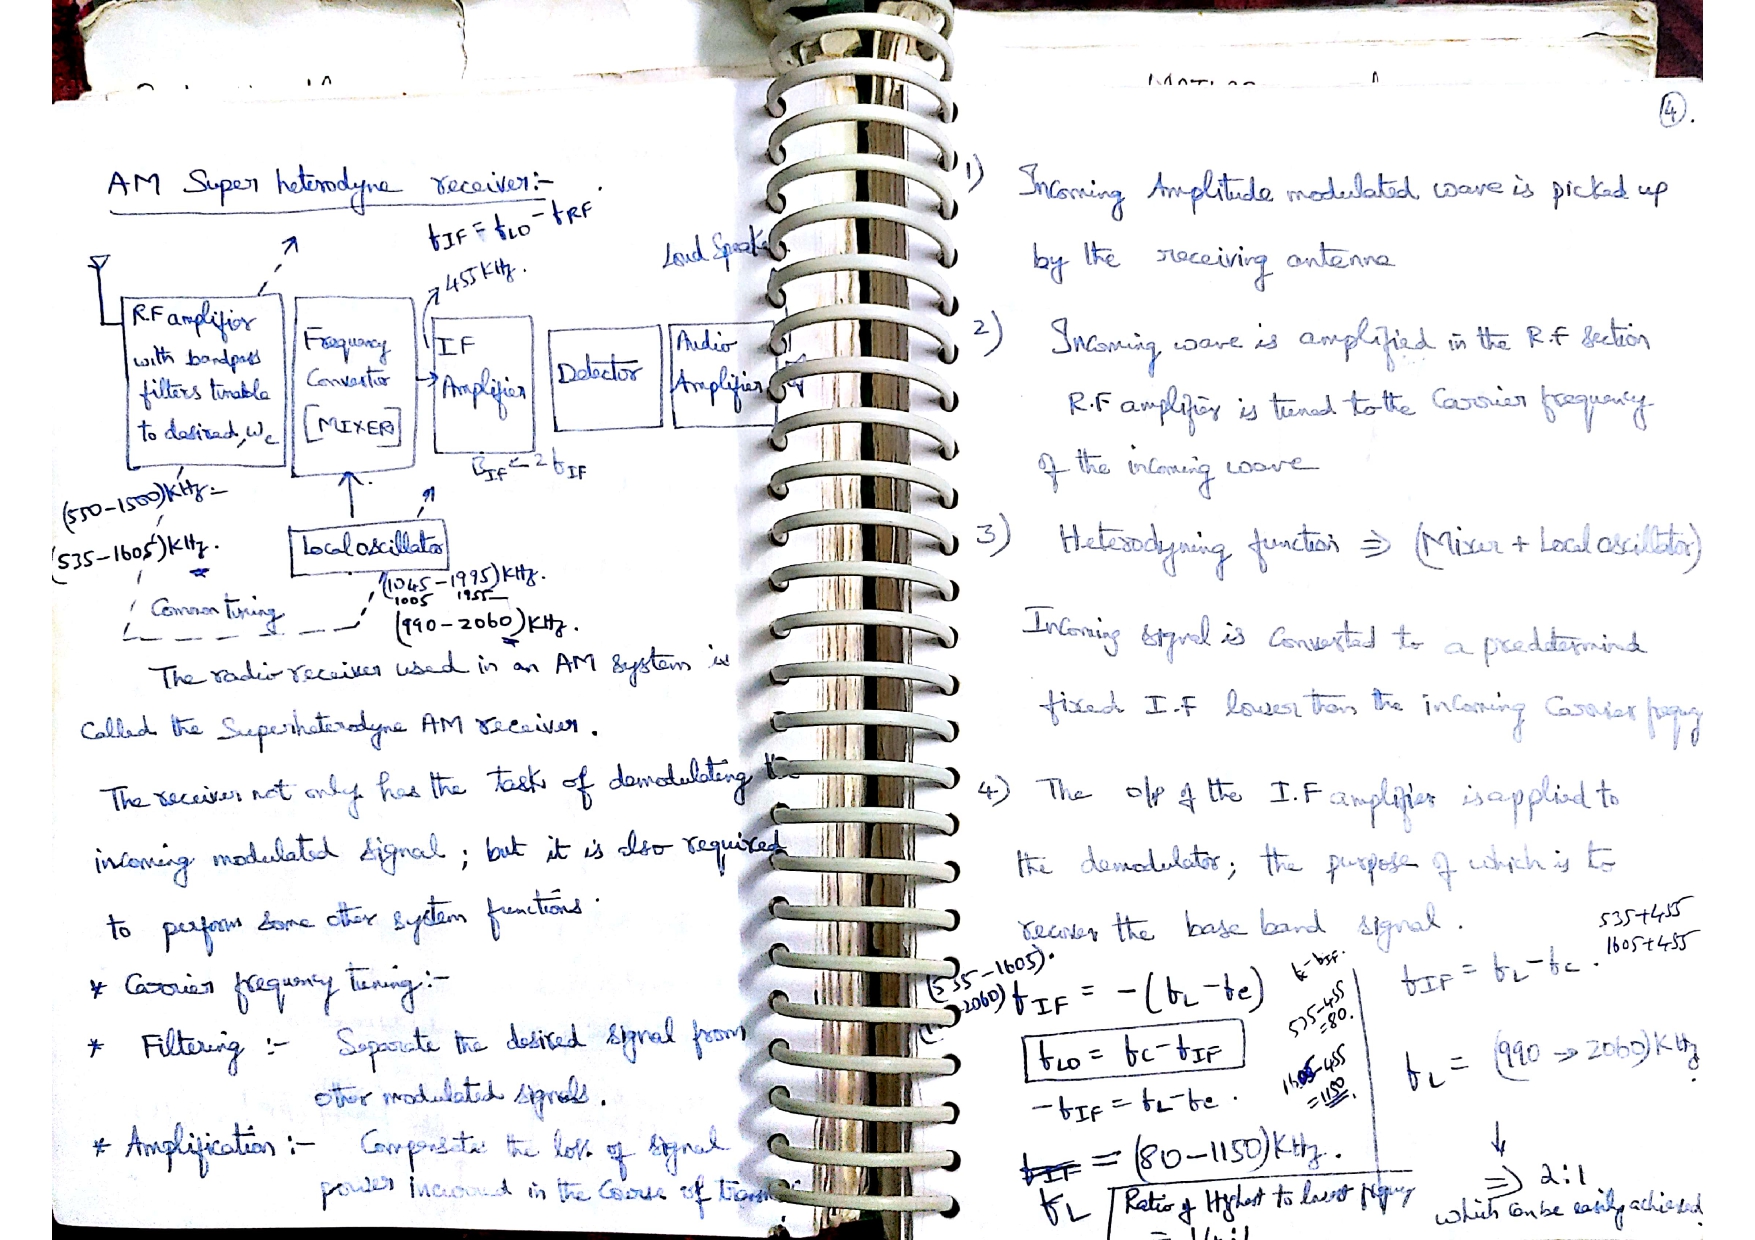 AM Super heterodyne receiver:-
fIF = fLO - fRF
455 KHz.
Loud Speaker
R.F amplifier
with bandpass
filters tunable
to desired, ωc
Frequency
Convertor
[MIXER]
IF
Amplifier
Detector
Audio
Amplifier
BIF < 2fIF
(550-1500)KHz-
(535-1605)KHz.
Local oscillator
(1045-1995)KHz.
1005 1955
(990-2060)KHz.
Common tuning
The radio receiver used in an AM system is
called the Superheterodyne AM receiver.
The receiver not only has the task of demodulating the
incoming modulated signal; but it is also required
to perform some other system functions.
* Carrier frequency tuning:-
* Filtering :- Separate the desired signal from
other modulated signals.
* Amplification:- Compensate the loss of signal
power incurred in the course of
4.
1) Incoming Amplitude modulated wave is picked up
by the receiving antenna
2) Incoming wave is amplified in the R.F section
R.F amplifier is tuned to the Carrier frequency
of the incoming wave
3) Heterodyning function ⇒ (Mixer + Local oscillator)
Incoming signal is converted to a preddtermind
fixed I.F lower than the incoming Carrier frequency
4) The o/p of the I.F amplifier is applied to
the demodulator; the purpose of which is to
recover the base band signal.
(535-1605).
2060) fIF = -(fL-fc)
fLO = fC-fIF
-fIF = fL-fc.
fIF = (80-1150)KHz.
fL
Ratio of Highest to lowest
535-455
=80.
1605-455
=1150.
535+455
1605+455
fIF = fL-fc.
fL = (990 → 2060)KHz.
⇒ 2:1
which can be easily achieved